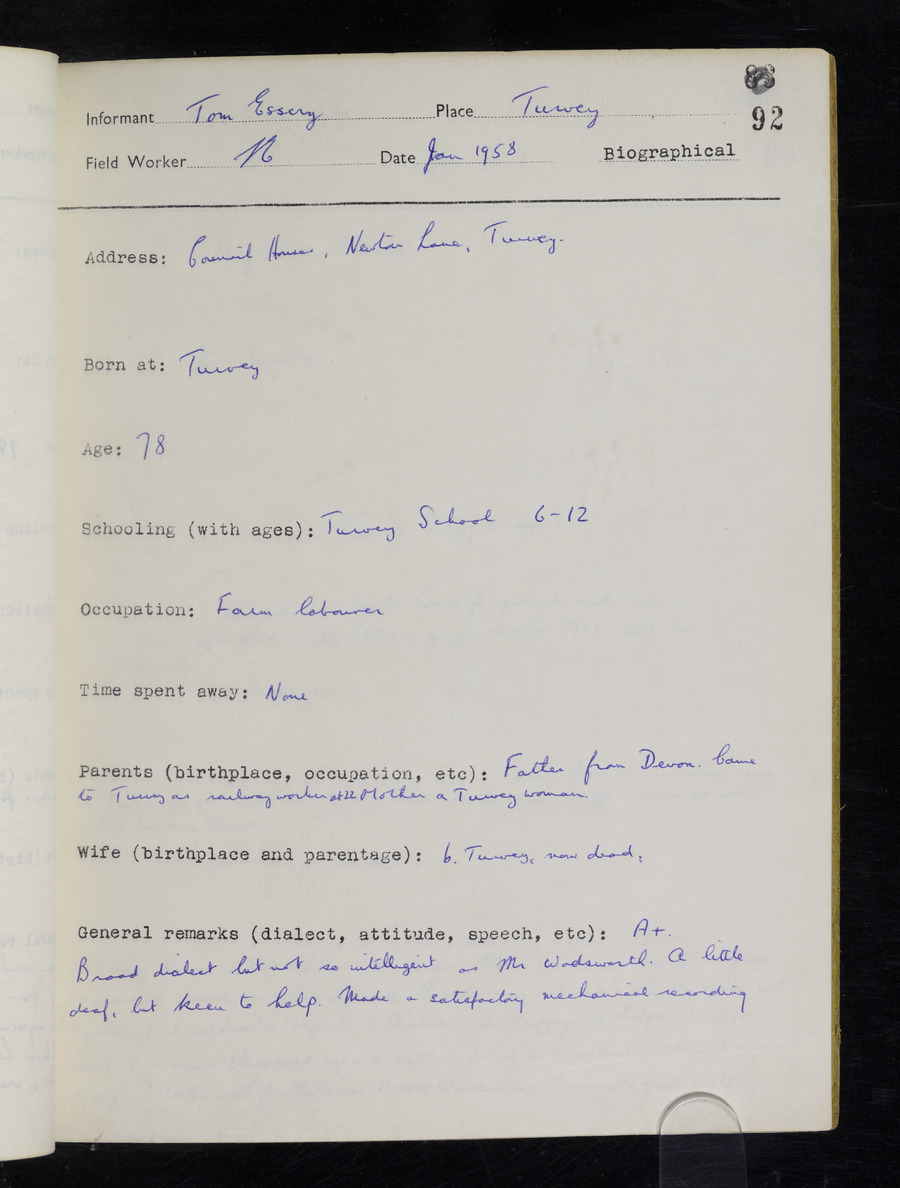 92
Informant Tom Essery Place Turvey
Field Worker N Date Jan 1958 Biographical
Address: Council Houses, Newton Lane, Turvey.
Born at: Turvey
Age: 78
Schooling (with ages): Turvey School 6-12
Occupation: Farm labourer
Time spent away: None
Parents (birthplace, occupation, etc): Father from Devon. Came
to Turvey as railway worker at 22 Mother a Turvey woman
Wife (birthplace and parentage): b. Turvey, now dead.
General remarks (dialect, attitude, speech, etc): A+.
Broad dialect but not so intelligent as Mr Wadsworth. A little
deaf, but keen to help. Made a satisfactory mechanical recording